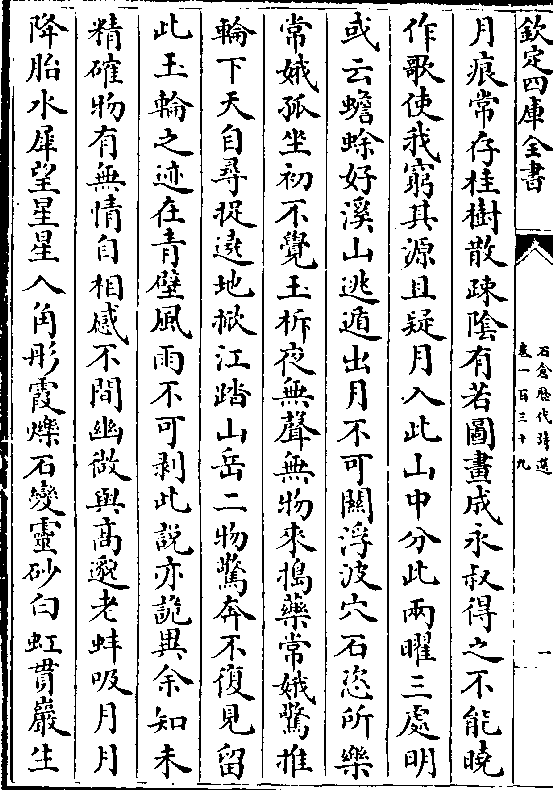 欽定四庫全書
石倉歷代詩選
卷一百三十九
一
月痕常存桂樹散疎陰有若圖畫成永叔得之不能曉
作歌使我窮其源且疑月入此山中分此兩曜三處明
或云蟾蜍好溪山逃遁出月不可關浮波穴石恣所樂
常娥孤坐初不覺玉杵夜無聲無物來搗藥常娥驚推
輪下天自尋捉遶地掀江踏山岳二物驚奔不復見留
此玉輪之迹在青壁風雨不可剥此說亦詭異余知未
精確物有無情自相感不間幽微與高邈老蚌吸月月
降胎水犀望星星入角彤霞爍石變靈砂白虹貫巖生